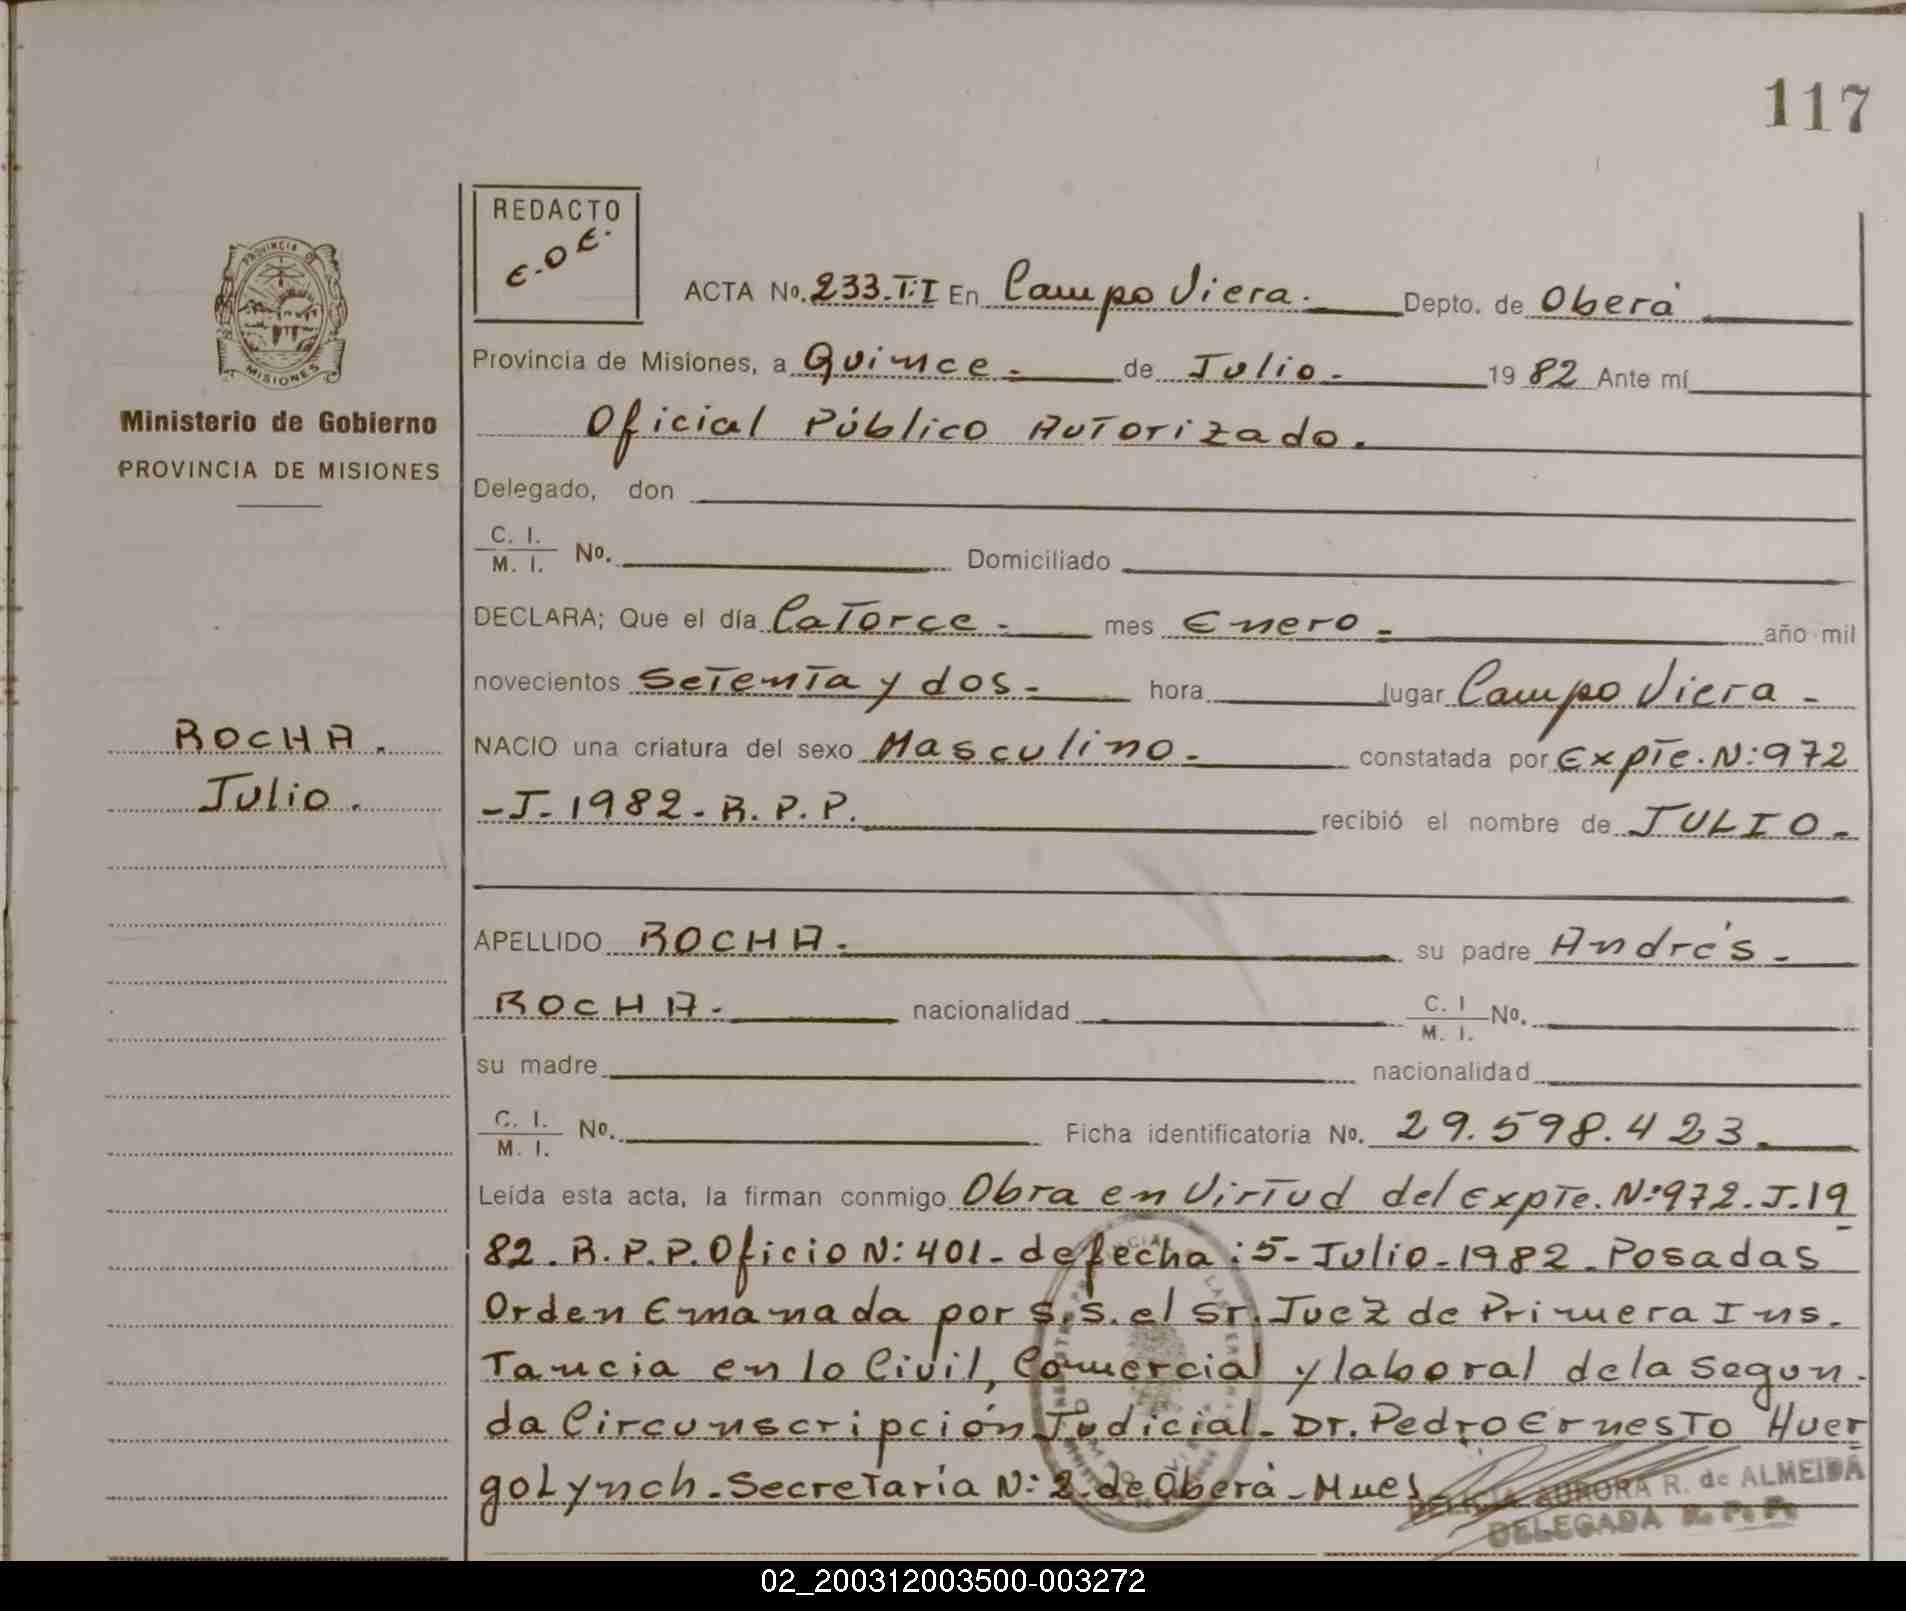 117
REDACTO
E.O.E.
PROVINCIA DE
MISIONES
ACTA No. 233.T.I En Campo Viera. Depto. de Oberá
Provincia de Misiones, a Quince. de Julio. 1982 Ante mí
Ministerio de Gobierno
Oficial Público Autorizado.
PROVINCIA DE MISIONES
Delegado, don
C. I.
M. I. No. Domiciliado
DECLARA; Que el día Catorce. mes Enero. año mil
novecientos Setenta y dos. hora lugar Campo Viera.
ROCHA.
Julio.
NACIO una criatura del sexo Masculino. constatada por Expte. N: 972
-J. 1982. R. P. P. recibió el nombre de JULIO.
APELLIDO ROCHA. su padre Andrés.
ROCHA. nacionalidad C. I
M. I. No.
su madre nacionalidad
C. I.
M. I. No. Ficha identificatoria No. 29.598.423.
Leída esta acta, la firman conmigo Obra en Virtud del Expte. N: 972. J. 19
82. R. P. P. Oficio N: 401. de fecha: 5- Julio - 1982. Posadas
Orden Emanada por S. S. el Sr. Juez de Primera Ins.
Tancia en lo Civil, Comercial y laboral de la Segun.
da Circunscripción Judicial. Dr. Pedro Ernesto Huer
go Lynch. Secretaría N: 2. de Oberá. Mues
DELICIA AURORA R. de ALMEIDA
DELEGADA R. P. P.
02_200312003500-003272